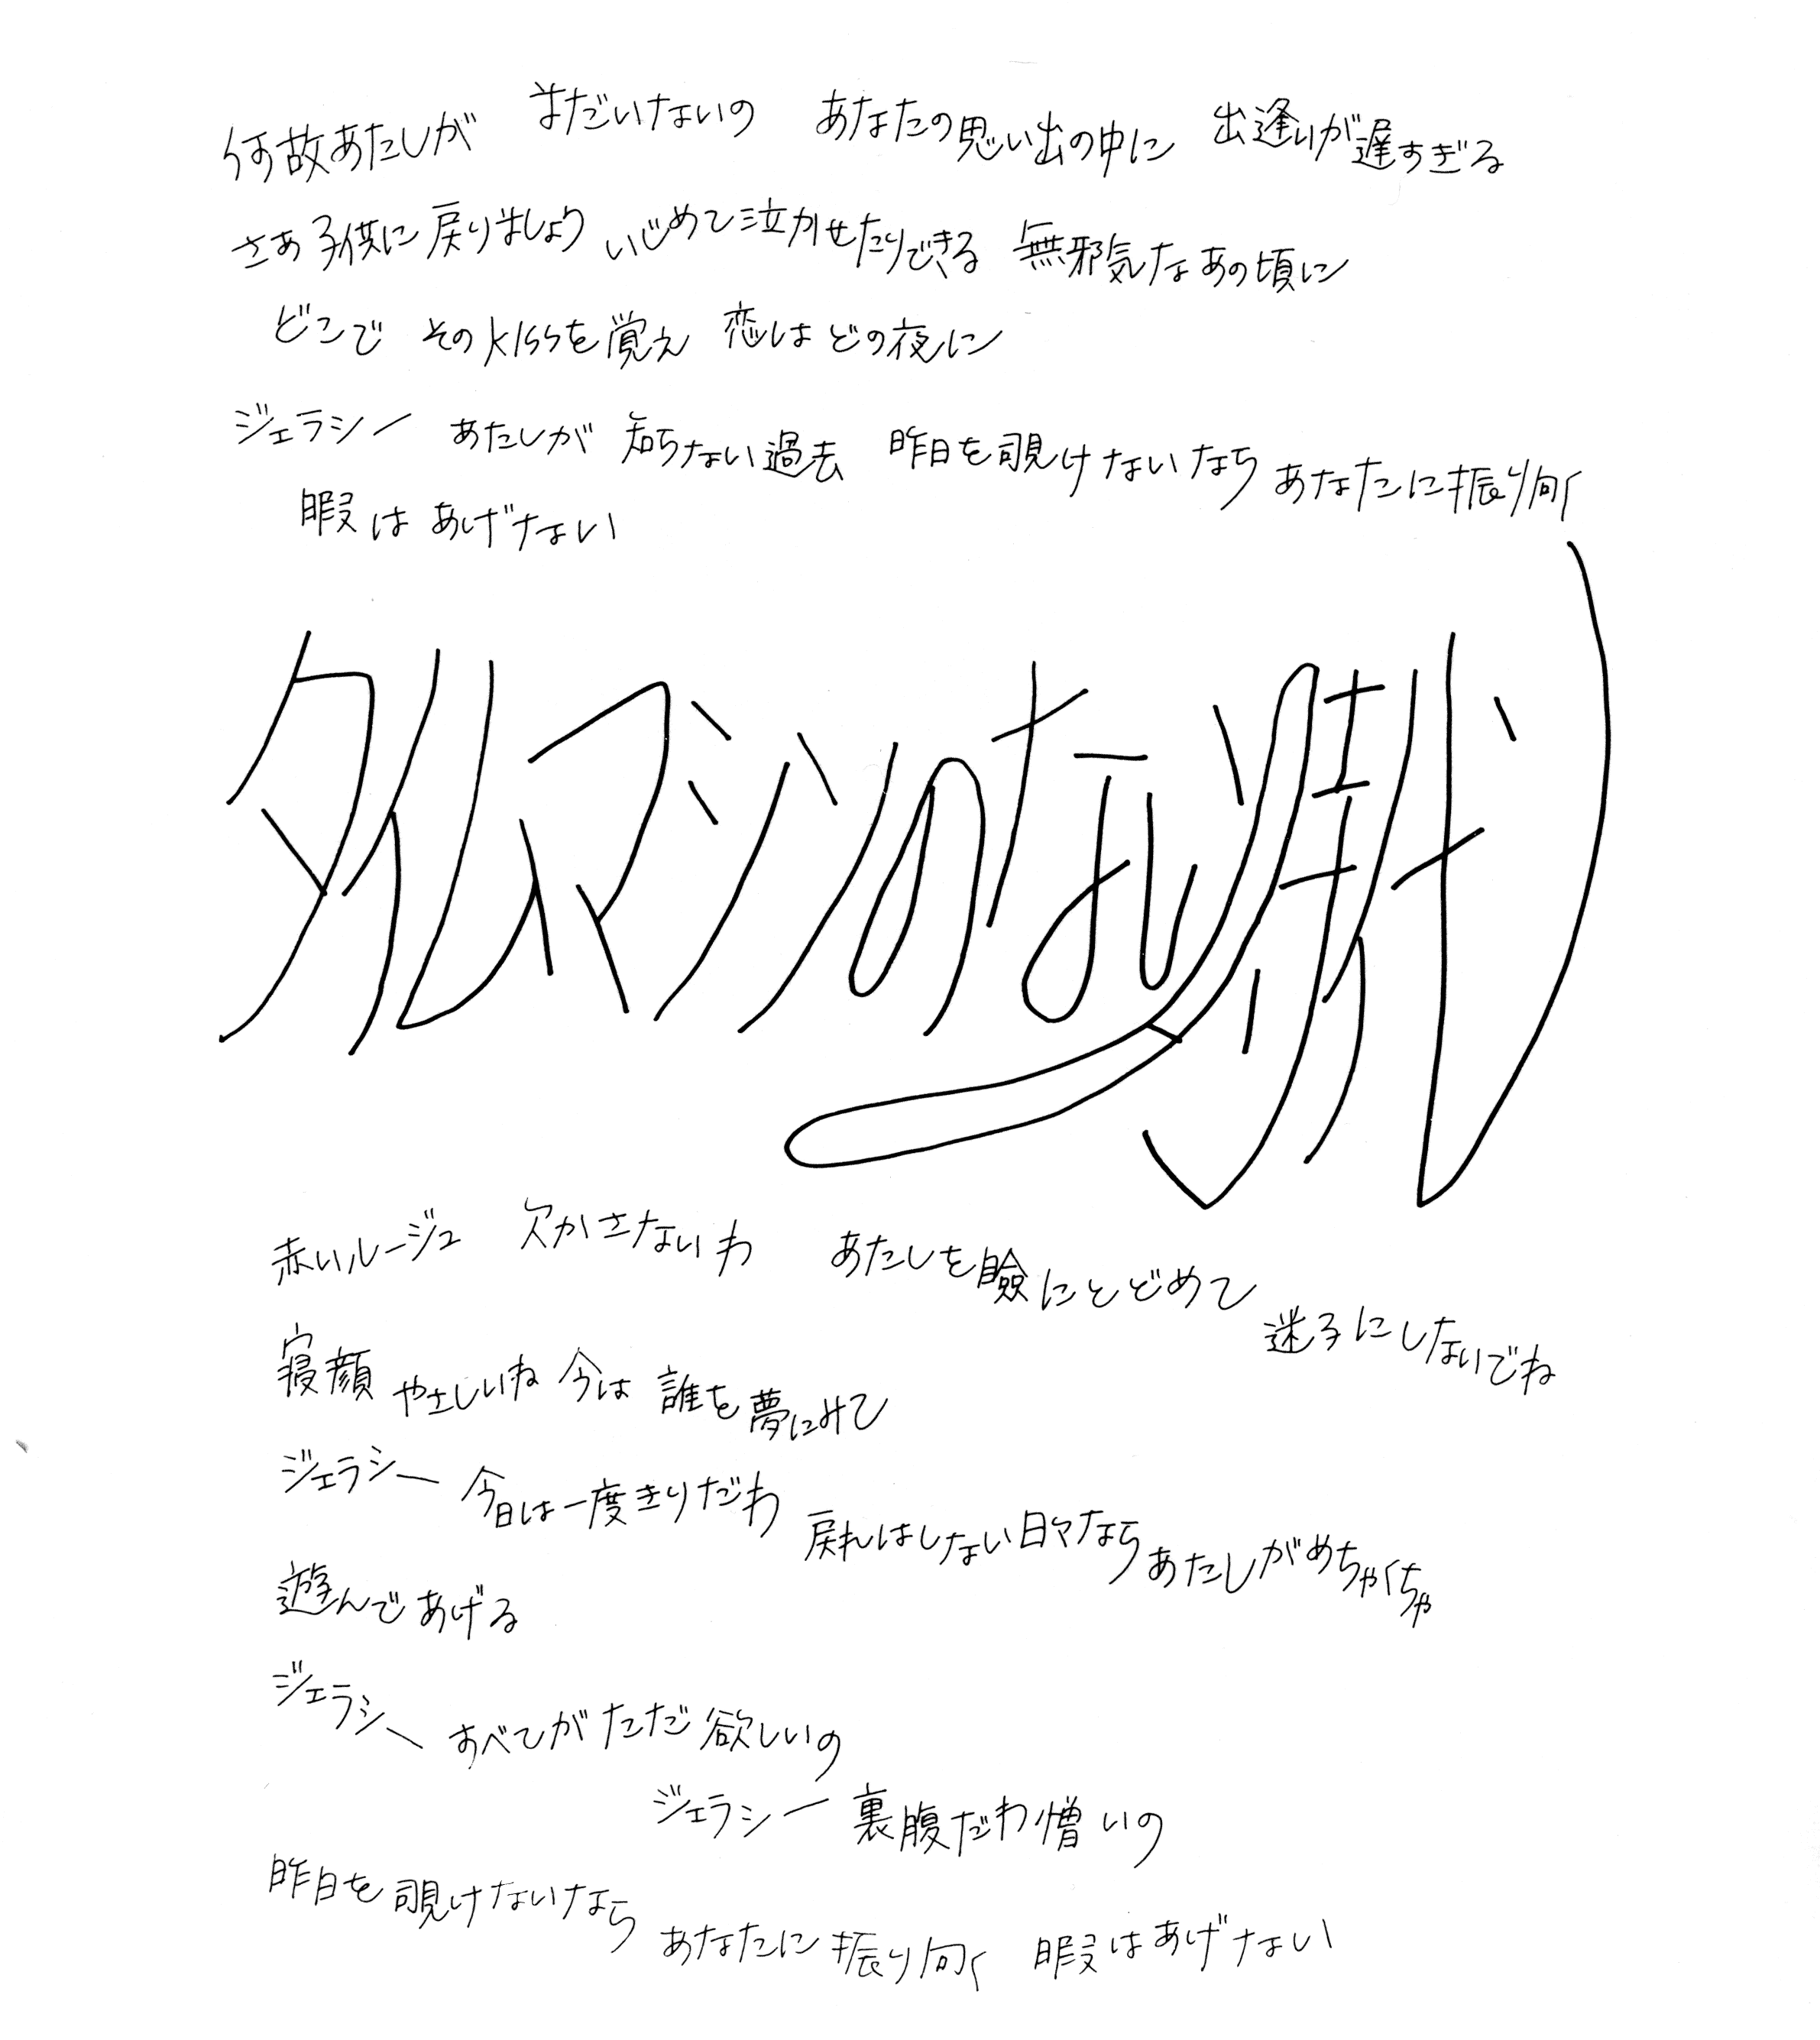 何故あたしが まだいないの あなたの思い出の中に 出逢いが遅すぎる
さあ子供に戻りましょう いじめて泣かせたりできる 無邪気なあの頃に
どこで そのkissを覚え 恋はどの夜に
ジェラシー あたしが 知らない過去 昨日を覗けないなら あなたに振り向く
暇は あげない
タイムマシンのない時代
赤いルージュ 欠かさないわ あたしを瞼にとどめて 迷子にしないでね
寝顔 やさしいね 今は 誰を夢にみて
ジェラシー 今日は一度きりだわ 戻れはしない日々なら あたしがめちゃくちゃ
遊んであげる
ジェラシー すべてがただ欲しいの
ジェラシー 裏腹だわ憎いの
昨日を覗けないなら あなたに振り向く 暇はあげない